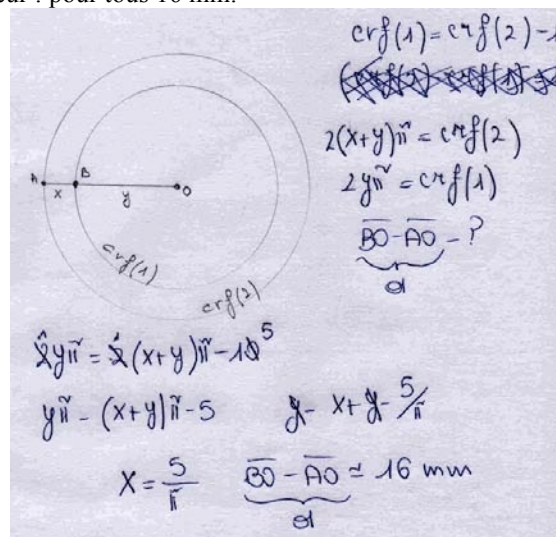 pour tous 16 mm.
crf(1) = crf(2) - 1
A
x
B
y
O
crf(1)
crf(2)
2(x+y)π = crf(2)
2yπ = crf(1)
BO - AO = ?
d
2yπ = 2(x+y)π - 10 5
yπ = (x+y)π - 5
y = x + y - 5/π
x = 5/π
BO - AO ≃ 16 mm
d